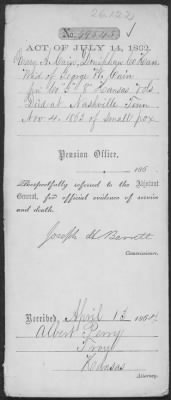 26.122
No. 49545
ACT OF JULY 14, 1862.
Mary A. Cain, Doniphan Co Kan
Wid of George W. Cain
Co "G" 8" Kansas Vols
Died at Nashville Tenn
Nov 4. 1863 of small pox
Pension Office,
186
Respectfully referred to the Adjutant
General, for official evidence of service
and death.
Joseph H Barrett
Commissioner.
Received, April 13 1864
Albert Perry
Troy
Kansas
Attorney.